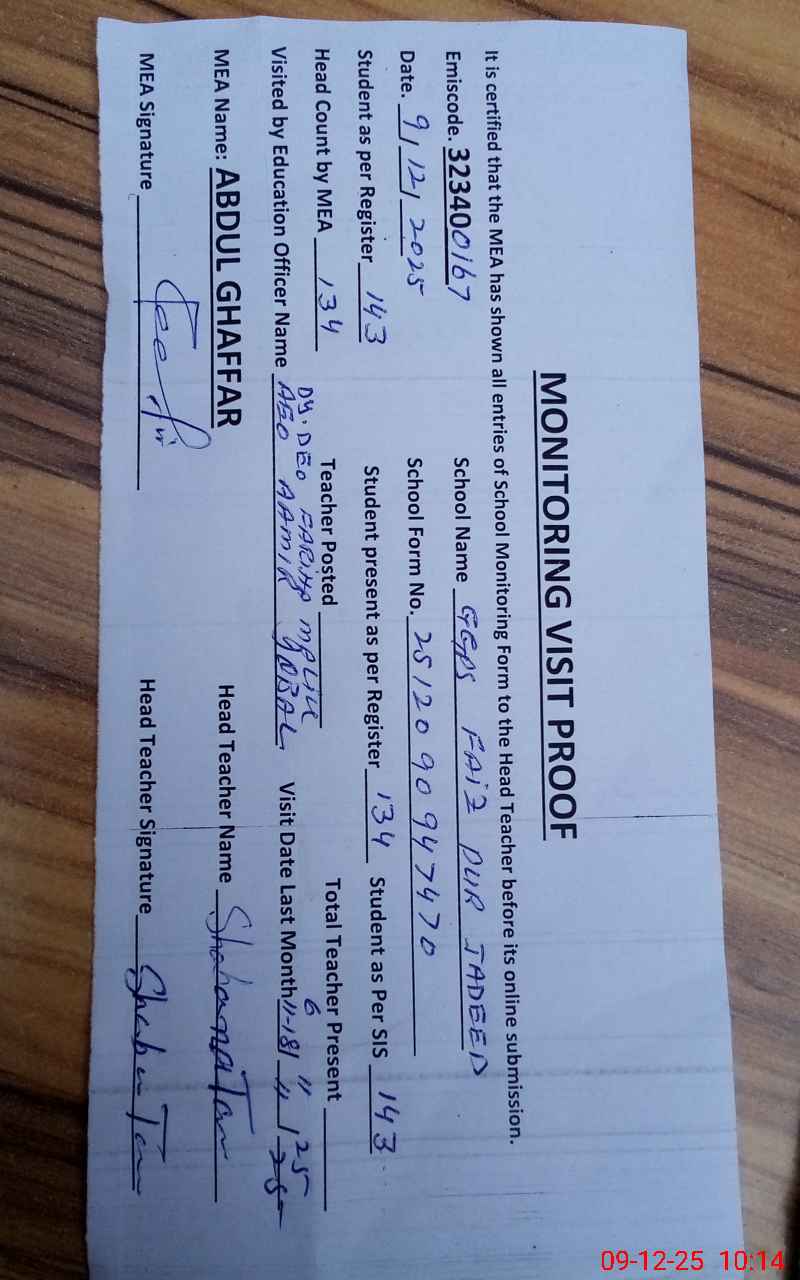 MONITORING VISIT PROOF
It is certified that the MEA has shown all entries of School Monitoring Form to the Head Teacher before its online submission.
Emiscode. 323400167 School Name GGPS FAIZ PUR JADEED
Date. 9/12/2025 School Form No. 2512090947470
Student as per Register 143 Student present as per Register 134 Student as Per SIS 143
Head Count by MEA 134 Teacher Posted Total Teacher Present
DY. DEO FARIHA MALIK 6 11 25
Visited by Education Officer Name AEO AAMIR IQBAL Visit Date Last Month 11-18/11/
MEA Name: ABDUL GHAFFAR Head Teacher Name Shabana
MEA Signature Head Teacher Signature
09-12-25 10:14